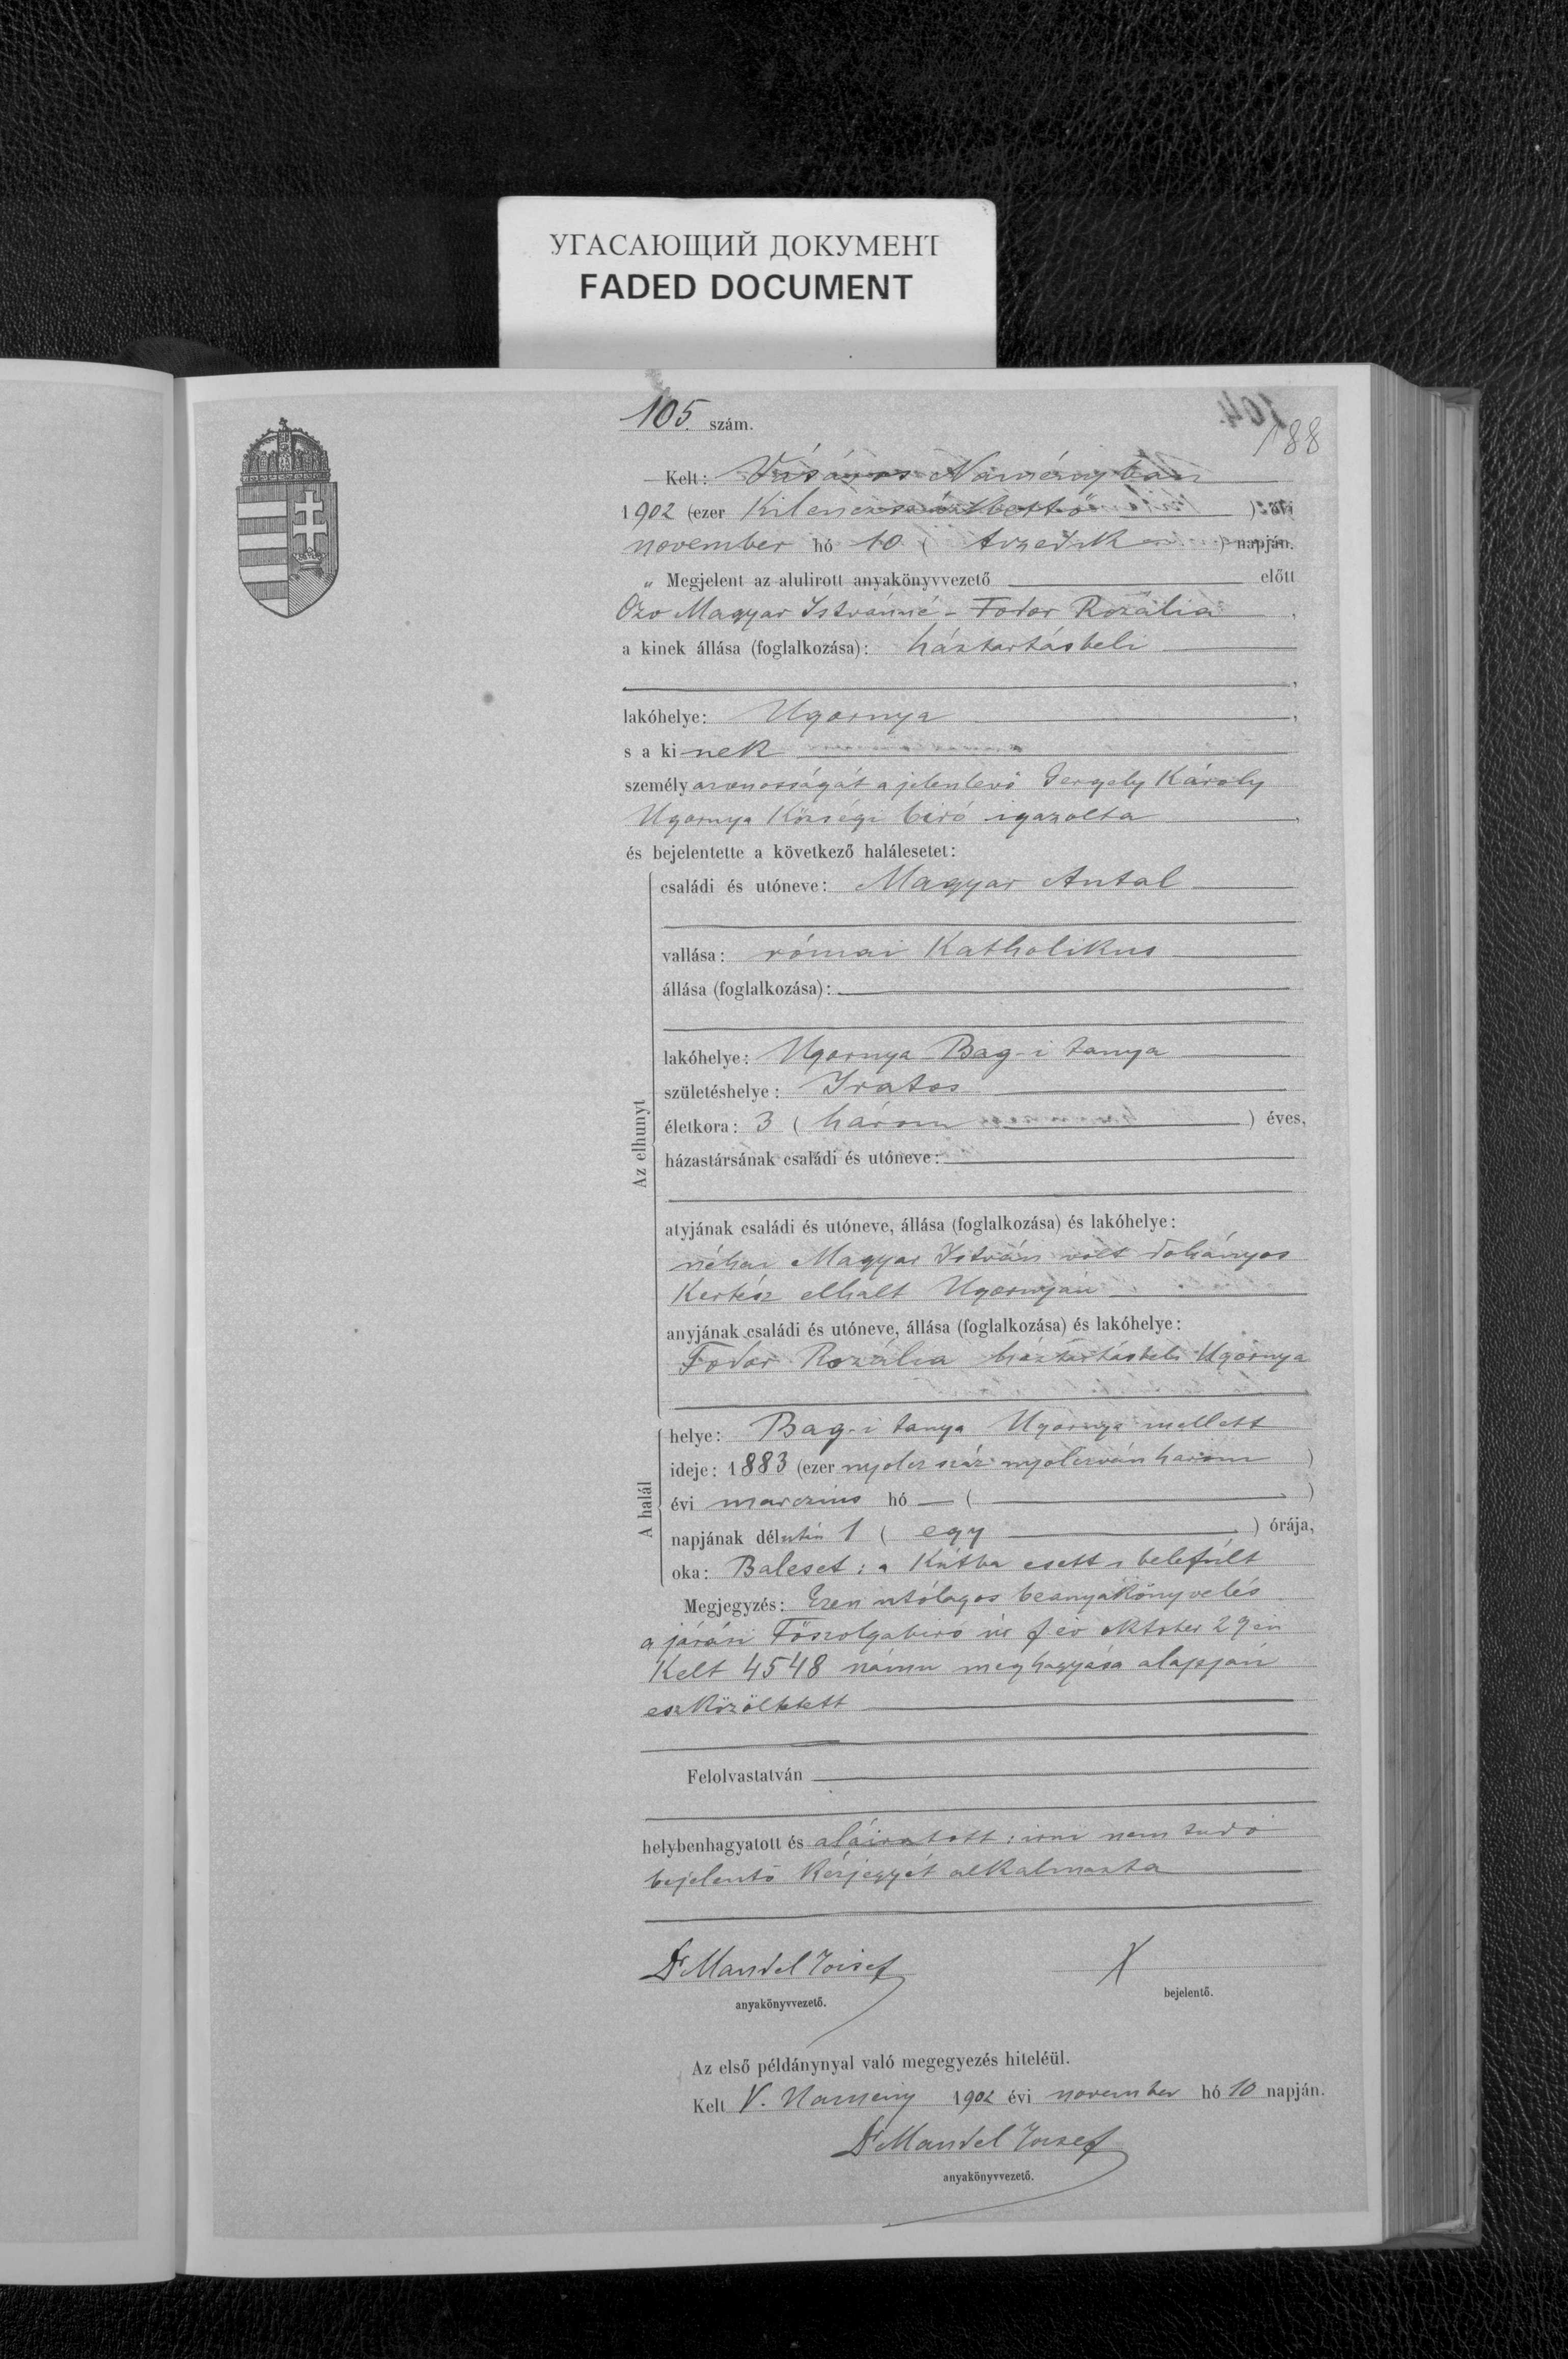 УГАСАЮЩИЙ ДОКУМЕНТ
FADED DOCUMENT
105. szám.
188
Kelt: Vásáros Naményban
1902 (ezer Kilenczszázkettő)
november hó 10 ( tizedik ) napján.
Megjelent az alulirott anyakönyvvezető előtt
Özv Magyar Istvánné - Fodor Rozália
a kinek állása (foglalkozása): háztartásbeli
lakóhelye: Ugornya
s a kinek
személyazonosságát a jelenlevő Gergely Károly
Ugornya Községi biró igazolta
és bejelentette a következő halálesetet:
Az elhunyt
családi és utóneve: Magyar Antal
vallása: római Katholikus
állása (foglalkozása):
lakóhelye: Ugornya Bag-i tanya
születéshelye: Iratos
életkora: 3 ( három ) éves,
házastársának családi és utóneve:
atyjának családi és utóneve, állása (foglalkozása) és lakóhelye:
néhai Magyar István volt dohányos
Kertész elhalt Ugornyán
anyjának családi és utóneve, állása (foglalkozása) és lakóhelye:
Fodor Rozália háztartásbeli Ugornya
A halál
helye: Bag-i tanya Ugornya mellett
ideje: 1883 (ezer nyolczszáz nyolczván három )
évi marczius hó — ( )
napjának délután 1 ( egy ) órája,
oka: Baleset: a Kútba esett s belefúlt
Megjegyzés: Ezen utólagos beanyakönyvelés
a járási Főszolgabiró úr f év oktober 29én
Kelt 4548 számu meghagyása alapján
eszközöltetett
Felolvastatván
helybenhagyatott és aláiratott: irni nem tudó
bejelentő Kézjegyét alkalmazta
Dr Mandel József
anyakönyvvezető.
X
bejelentő.
Az első példánynyal való megegyezés hiteléül.
Kelt V. Namény 1902 évi november hó 10 napján.
Dr Mandel József
anyakönyvvezető.